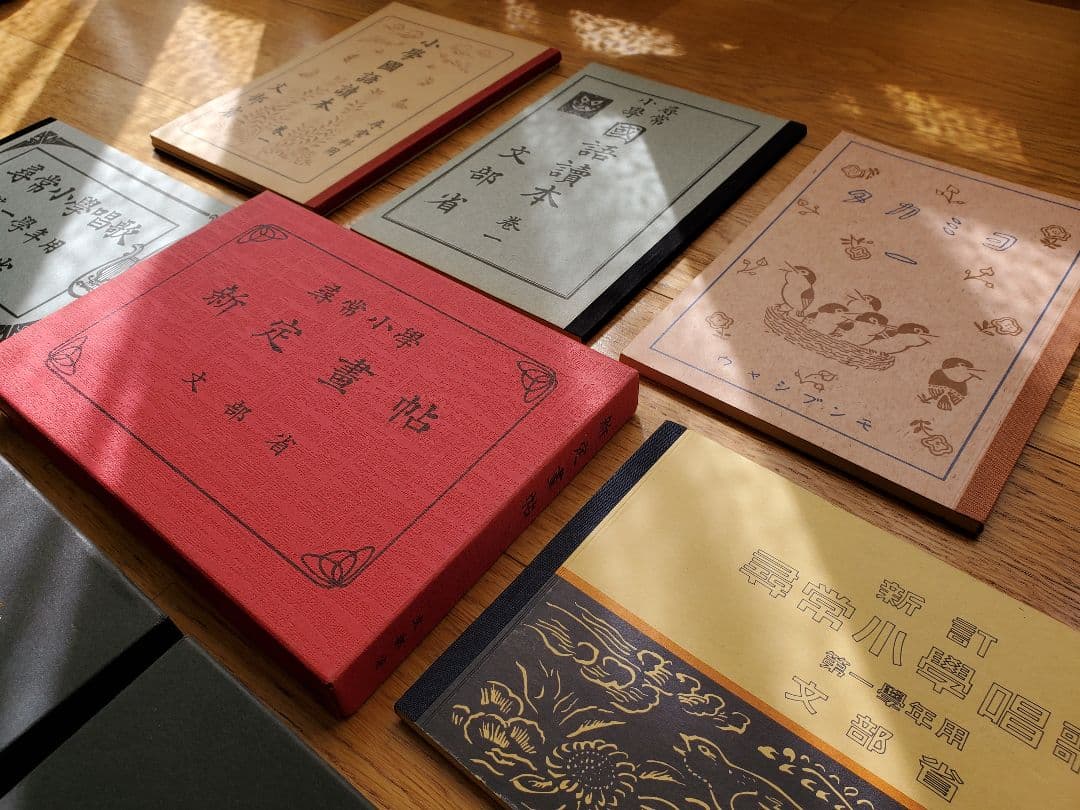 小學國語讀本
尋常科用
巻一
文部省
尋常
小學
國語讀本
巻一
文部省
ヨミカタ
一
モンブシャウ
尋常小學唱歌
第一學年用
省
尋常小學
新定畫帖
文部省
新定畫帖
文部省
新訂
尋常小學唱
第一學年用
文部省